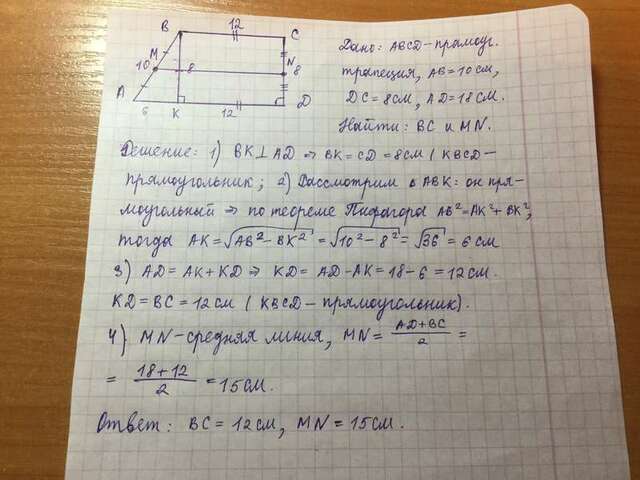 B 12 C
M
10 8 N 8
A
6 K 12 D
Дано: ABCD - прямоуг.
трапеция, AB = 10 см,
DC = 8 см, AD = 18 см.
Найти: BC и MN.
Решение: 1) BK ⊥ AD ⇒ BK = CD = 8 см ( KBCD -
прямоугольник; 2) Рассмотрим △ ABK: он пря-
моугольный ⇒ по теореме Пифагора AB² = AK² + BK²,
тогда AK = √AB² - BK² = √10² - 8² = √36 = 6 см
3) AD = AK + KD ⇒ KD = AD - AK = 18 - 6 = 12 см.
KD = BC = 12 см ( KBCD - прямоугольник).
4) MN - средняя линия, MN = AD + BC / 2 =
= 18 + 12 / 2 = 15 см.
Ответ: BC = 12 см, MN = 15 см.